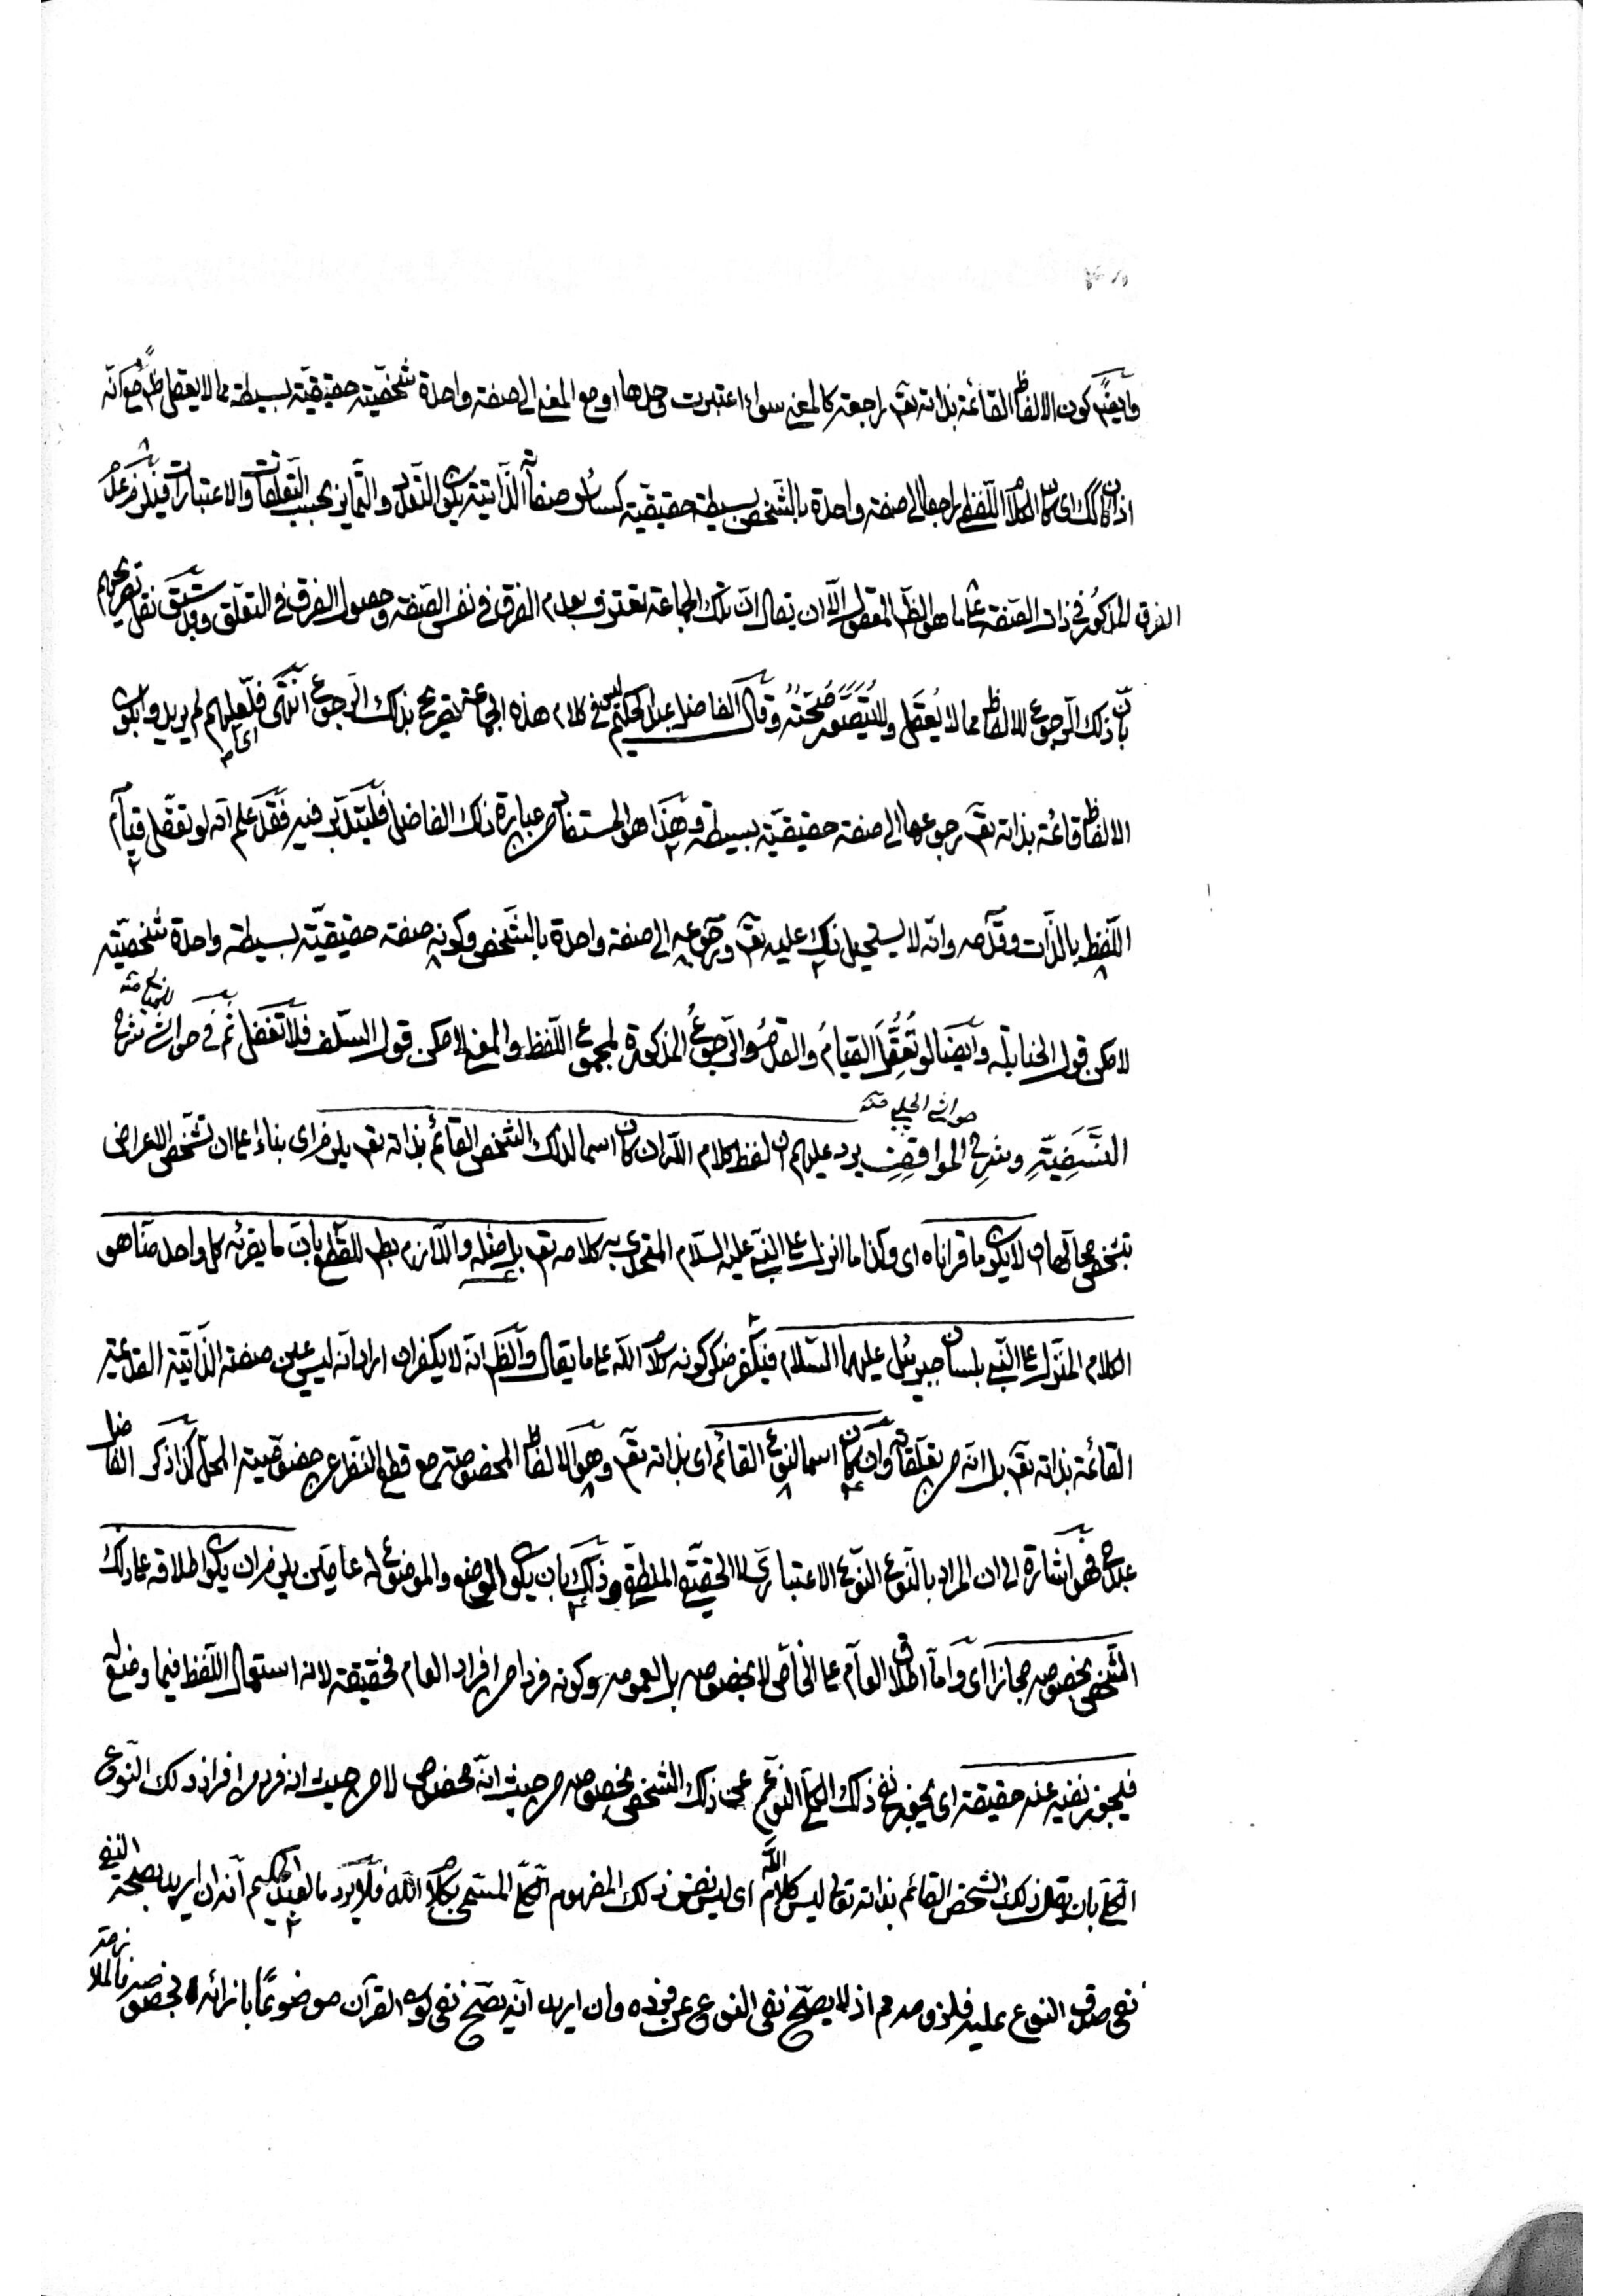 وايضا كون الالفاظ القائمة بذاته تعـ راجعة كالمعنى سواء اعتبرت وحدها او مع المعنى الى صفة واحدة شخصيّة حقيقيّة بسيطة مما لا يعقل مع انّه
اذ ان كان كك اى كان الكلام اللّفظى راجعا الى صفة واحدة بالشّخص بسيطة حقيقيّة كسائر صفاته الذّاتيّة يكون التعدّد والتّمايز بحسب التّعلّقات والاعتبارات فيلزم عدم
الفرق المذكور فى ذات الصّفة على ما هو الظّ المعقول الّا ان يقال انّ تلك الجماعة تعترف بعدم الفرق فى نفس الصّفة وحصول الفرق فى التعلّق وقد سبق نقل تصريحهم
بانّ ذلك الرّجوع للالفاظ مما لا يُعقَل ولا يُتصَوّر صحّته وقال الفاضل عبد الحكيم ليس فى كلام هذه الجماعة تصريح بذلك الرجوع انتهى فلعلّهم لم يريدوا بكون
الالفاظ قائمة بذاته تعـ رجوعها الى صفة حقيقيّة بسيطة وهذا هو المستفاد من عبارة ذلك الفاضل فليتدبّر فيه فقد علم انّه لو تعقّل قيام
اللّفظ بالذّات وقدمه وانّه لا يستحيل ذلك عليه تعـ ورجوعه الى صفة واحدة بالشّخص وكونه صفة حقيقيّة بسيطة واحدة شخصيّة
لامكن قول الحنابلة وايضا لو تُعُقِّلَ القيامُ والقدمُ والرّجوعُ المذكورة لمجموع اللّفظ والمعنى لامكن قول السّلف فلا تغفل ثم فى حواشى شرح
النَّسَفِيّةِ وشرح المواقِفِ يرد عليهم ان لفظ كلام اللّه ان كان اسما لذلك الشّخص القائم بذاته تعـ يلزم اى بناء على ان تشخّص الاعراض
بتشخّص محالّها ان لا يكون ما قرأناه اى وكذا ما انزل على النّبى عليه السّلام المتحدى به كلامه تعـ بل مثله واللّازم بط للقطع بان ما يقرئه كل واحد منّا هو
الكلام المنزل على النّبى بلسان جبرئيل عليهما السّلام فيكفر منكر كونه كلام اللّه على ما يقال والظّ انّه لا يكفر ان اراد انّه ليس عين صفته الذّاتيّة القديمة
القائمة بذاته تعـ بل انّه من تعلّقاته وان كان اسما للنّوع القائم اى بذاته تعـ وهو الالفاظ المخصوصة مع قطع النّظر عن خصوصيّة المحلّ كذا ذكر الفاضل
فهو اشارة الى ان المراد بالنّوع النّوع الاعتبارى لا الحقيقى المنطقى وذلك بان يكون الوضع والموضوع له عامين يلزم ان يكون اطلاقه على ذلك
الشّخص بخصوصه مجازا اى وامّا اطلاق العامّ على الخاصّ لا بخصوصه بل بعمومه وكونه فردا من افراد العام فحقيقة لانه استعمال اللّفظ فيما وضع له
فيجوز نفيه عنه حقيقة اى يجوز نفى ذلك الكلّى النّوعى عن ذلك الشّخص بخصوصه من حيث انّه مخصوص لا من حيث انه فرد من افراد ذلك النّوع
الكلّى بان يقال ذلك الشّخص القائم بذاته تعالى ليس كلام اللّه اى ليس نفس ذلك المفهوم الكلّى المسمّى بكلام اللّه فلا يرد ما لعبد الحكيم انّه ان اريد بصحّة النفى
نفى صدق النوع عليه فلزومه مم اذ لا يصحّ نفى النوع عن فرده وان اريد انّه يصحّ نفى كون القرآن موضوعًا بازائه بخصوصه فالملا